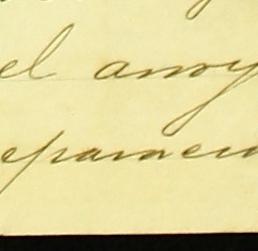 el arroy
eparamen